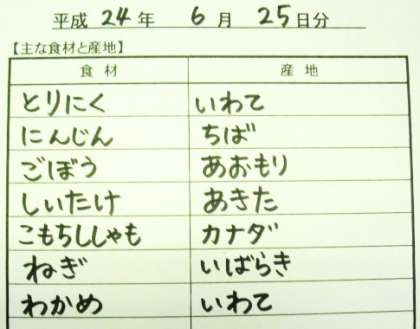 平成 24 年 6 月 25 日分
【主な食材と産地】
食材 産地
とりにく いわて
にんじん ちば
ごぼう あおもり
しいたけ あきた
こもちししゃも カナダ
ねぎ いばらき
わかめ いわて